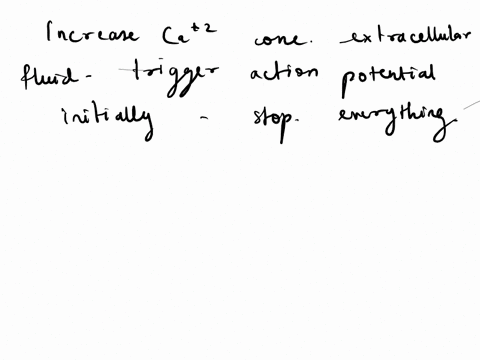 Increase Ca+2 conc. extracellular
fluid - trigger action potential
initially - stop. everything